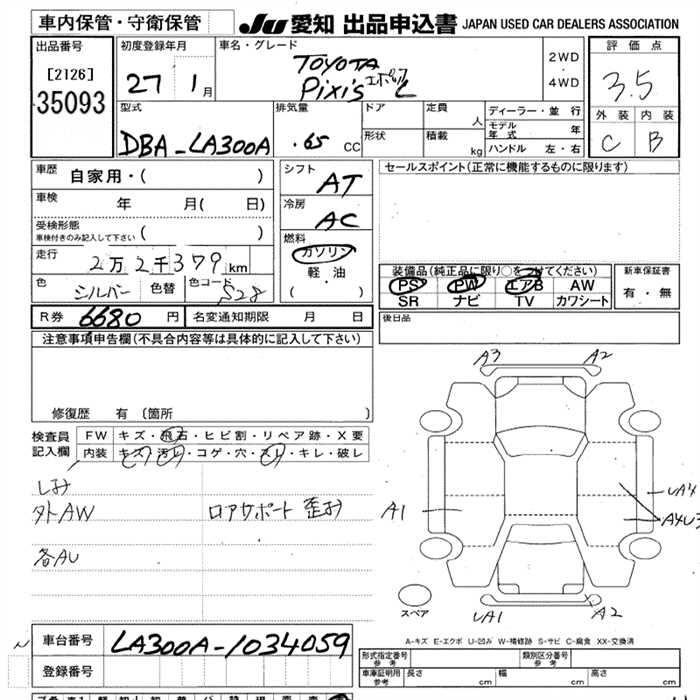 車内保管・守衛保管
JU 愛知 出品申込書 JAPAN USED CAR DEALERS ASSOCIATION
出品番号
[2126]
35093
初度登録年月
27 1月
車名・グレード
TOYOTA
Pixis エポック L
2WD
4WD
評価点
3.5
外装 内装
C B
型式
DBA-LA300A
排気量
.65 CC
ドア
形状
定員 人
積載 kg
ディーラー・並行
モデル年式 年
ハンドル 左・右
車歴
自家用・( )
車検
年 月( 日)
受検形態
車検付きのみ記入して下さい ( )
走行
2万2千379km
色
シルバー
色替
色コード
S28
シフト
AT
冷房
AC
燃料
ガソリン
軽・油
( )
セールスポイント(正常に機能するものに限ります)
装備品(純正品に限り○をつけてください)
PS PW エアB AW
SR ナビ TV カワシート
新車保証書
有・無
R券 6680 円 名変通知期限 月 日
後日品
注意事項申告欄(不具合内容等は具体的に記入して下さい)
修復歴 有〔箇所 〕
検査員
記入欄
FW キズ・飛石・ヒビ割・リペア跡・X要
内装 キズ・汚レ・コゲ・穴・スレ・キレ・破レ
しみ
外AW
ロアサポート 歪み
各AU
A3
A2
A1
UA4
A4U3
スペア
UA1
A2
A-キズ E-エクボ U-凹み W-補修跡 S-サビ C-腐食 XX-交換済
車台番号
LA300A-1034059
登録番号
形式指定番号
参考
類別区分番号
参考
車庫証明用
参考
長さ cm 幅 cm 高さ cm